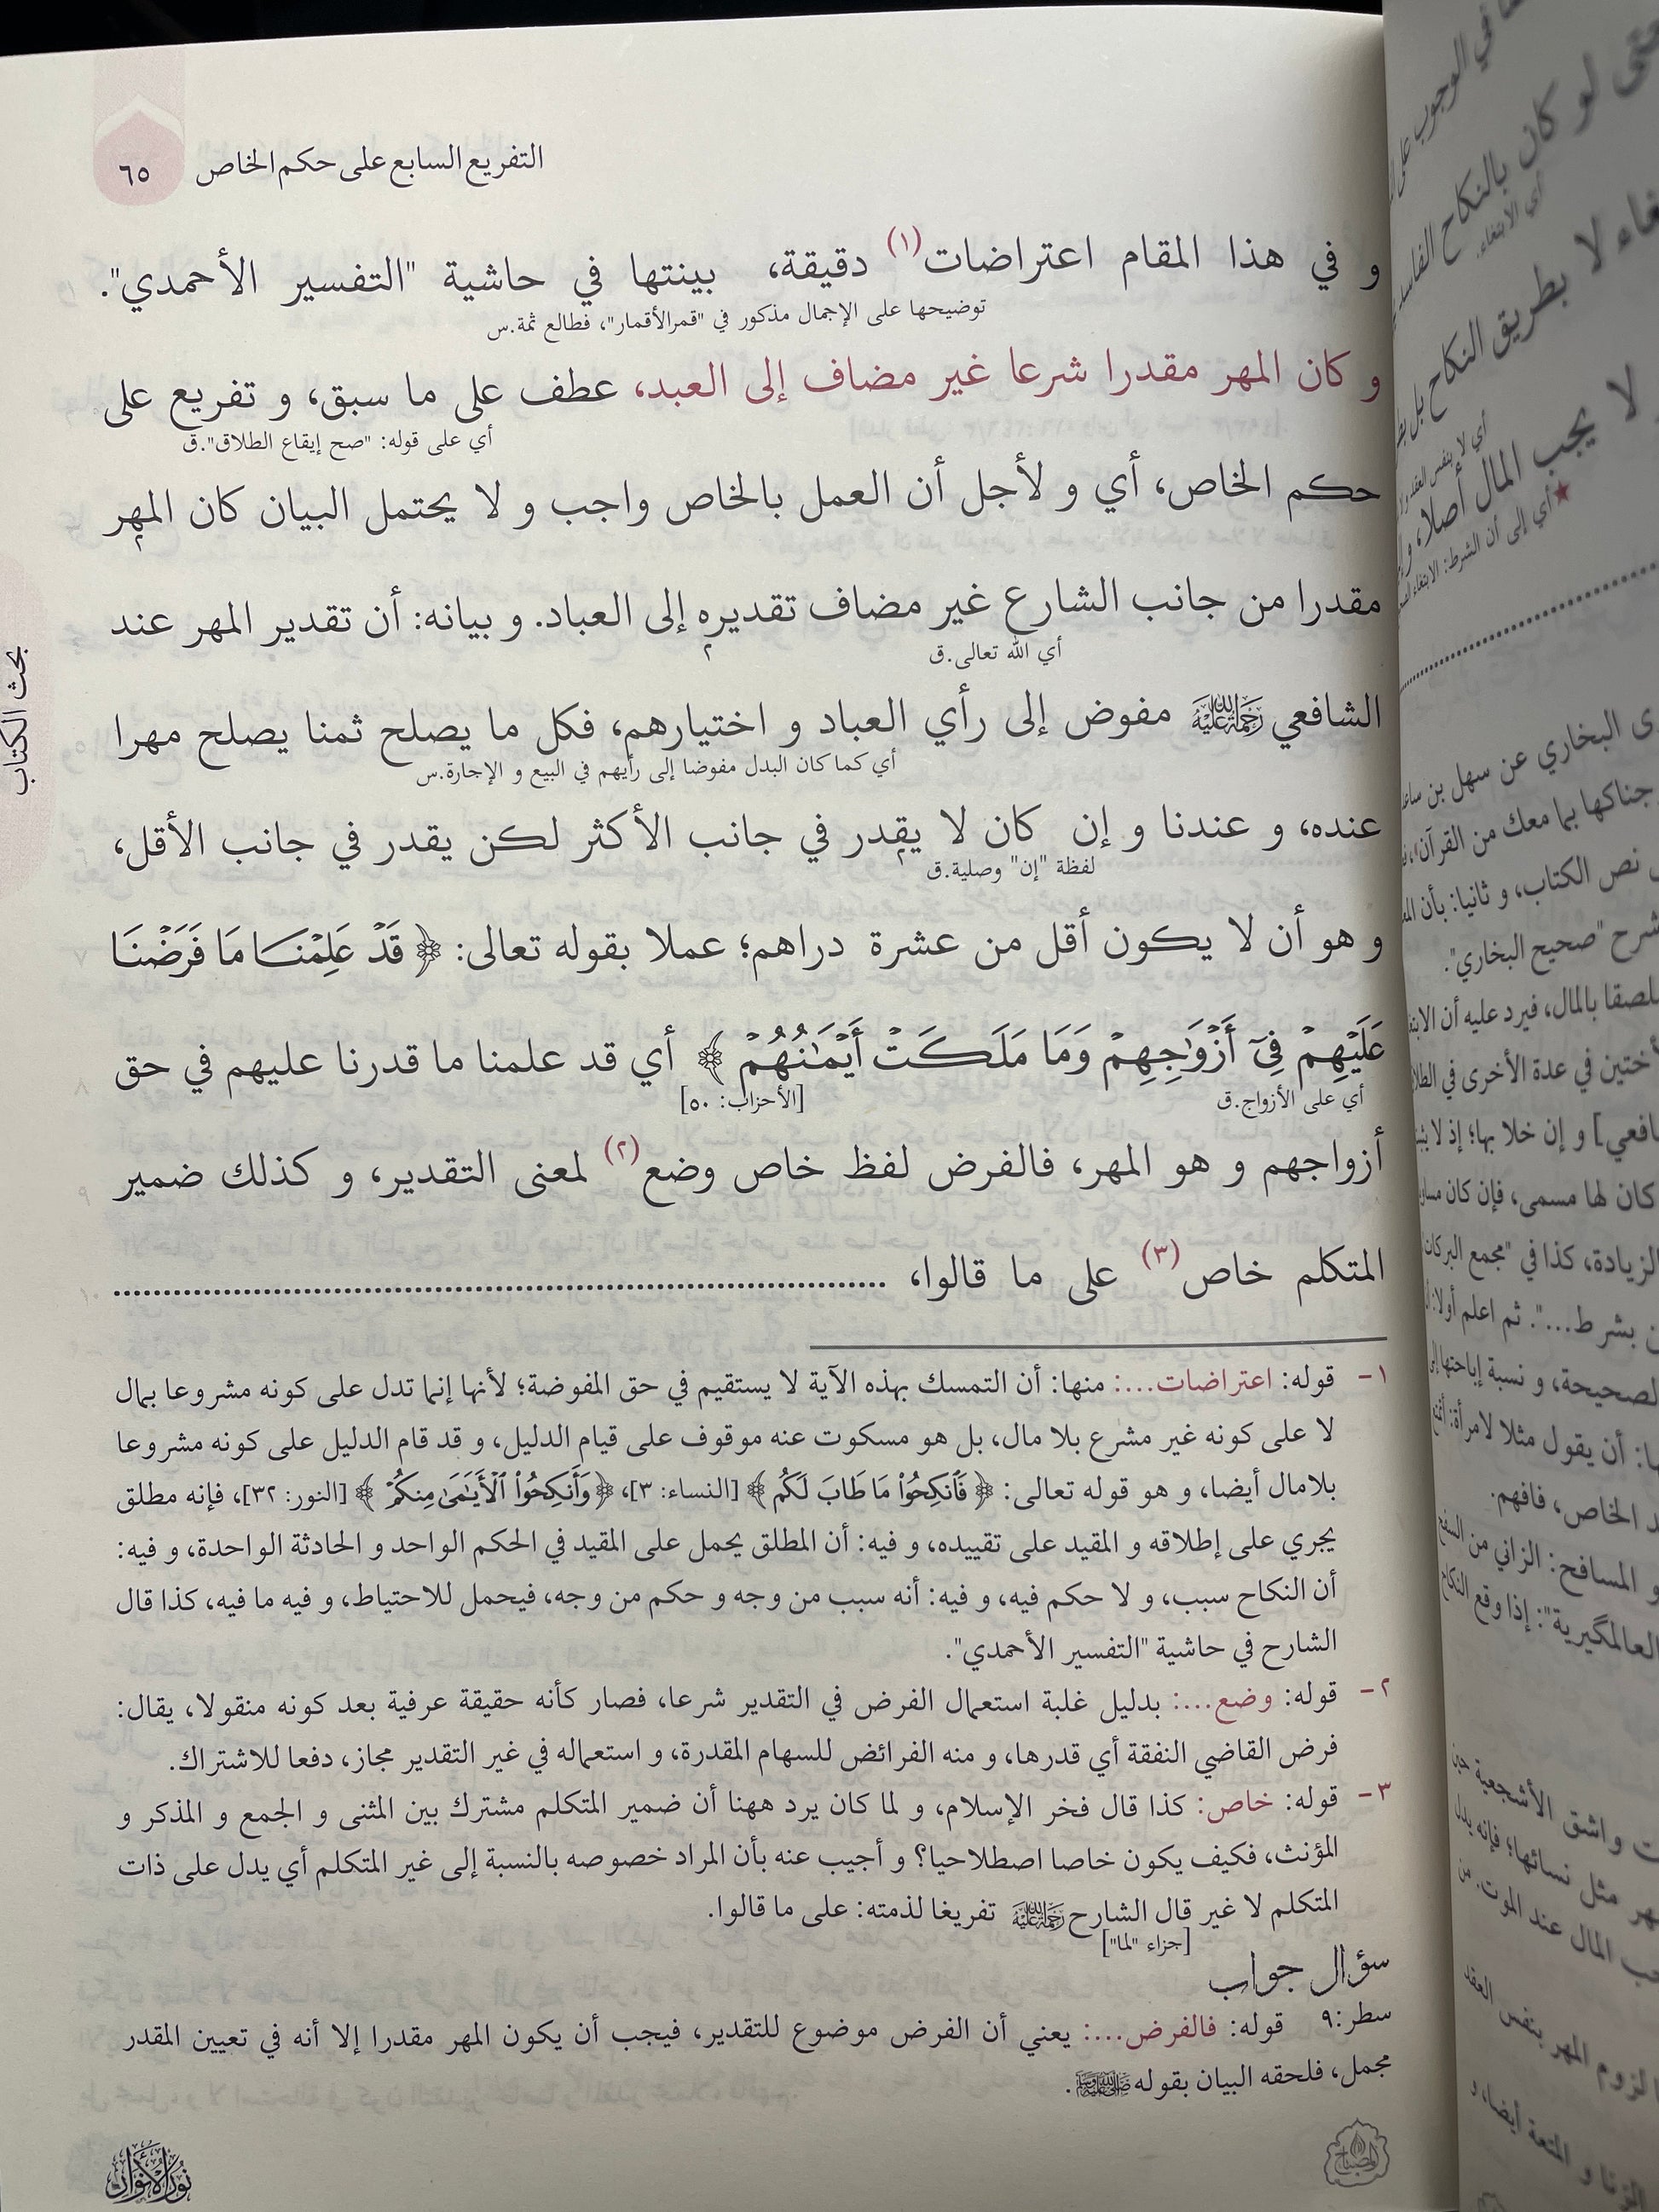 التفريع السابع على حكم الخاص ٦٥
و في هذا المقام اعتراضات(١) دقيقة، بينتها في حاشية "التفسير الأحمدي".
توضيحها على الإجمال مذكور في "قمر الأقمار"، فطالع ثمة.س
و كان المهر مقدرا شرعا غير مضاف إلى العبد، عطف على ما سبق، و تفريع على
أي على قوله: "صح إيقاع الطلاق".ق
حكم الخاص، أي و لأجل أن العمل بالخاص واجب و لا يحتمل البيان كان المهر
مقدرا من جانب الشارع غير مضاف تقديره إلى العباد. و بيانه: أن تقدير المهر عند
أي الله تعالى.ق
الشافعي رحمة الله عليه مفوض إلى رأي العباد و اختيارهم، فكل ما يصلح ثمنا يصلح مهرا
أي كما كان البدل مفوضا إلى رأيهم في البيع و الإجارة.س
عنده، و عندنا و إن كان لا يقدر في جانب الأكثر لكن يقدر في جانب الأقل،
لفظة "إن" وصلية.ق
و هو أن لا يكون أقل من عشرة دراهم؛ عملا بقوله تعالى: ﴿قَدْ عَلِمْنَا مَا فَرَضْنَا
عَلَيْهِمْ فِيٓ أَزْوَٰجِهِمْ وَمَا مَلَكَتْ أَيْمَٰنُهُمْ﴾ أي قد علمنا ما قدرنا عليهم في حق
أي على الأزواج.ق [الأحزاب: ٥٠]
أزواجهم و هو المهر، فالفرض لفظ خاص وضع(٢) لمعنى التقدير، و كذلك ضمير
المتكلم خاص(٣) على ما قالوا، ....................
١- قوله: اعتراضات...: منها: أن التمسك بهذه الآية لا يستقيم في حق المفوضة؛ لأنها إنما تدل على كونه مشروعا بمال
لا على كونه غير مشرع بلا مال، بل هو مسكوت عنه موقوف على قيام الدليل، و قد قام الدليل على كونه مشروعا
بلامال أيضا، و هو قوله تعالى: ﴿فَٱنكِحُوا۟ مَا طَابَ لَكُم﴾ [النساء: ٣]، ﴿وَأَنكِحُوا۟ ٱلْأَيَٰمَىٰ مِنكُمْ﴾ [النور: ٣٢]، فإنه مطلق
يجري على إطلاقه و المقيد على تقييده، و فيه: أن المطلق يحمل على المقيد في الحكم الواحد و الحادثة الواحدة، و فيه:
أن النكاح سبب، و لا حكم فيه، و فيه: أنه سبب من وجه و حكم من وجه، فيحمل للاحتياط، و فيه ما فيه، كذا قال
الشارح في حاشية "التفسير الأحمدي".
٢- قوله: وضع...: بدليل غلبة استعمال الفرض في التقدير شرعا، فصار كأنه حقيقة عرفية بعد كونه منقولا، يقال:
فرض القاضي النفقة أي قدرها، و منه الفرائض للسهام المقدرة، و استعماله في غير التقدير مجاز، دفعا للاشتراك.
٣- قوله: خاص: كذا قال فخر الإسلام، و لما كان يرد ههنا أن ضمير المتكلم مشترك بين المثنى و الجمع و المذكر و
المؤنث، فكيف يكون خاصا اصطلاحيا؟ و أجيب عنه بأن المراد خصوصه بالنسبة إلى غير المتكلم أي يدل على ذات
المتكلم لا غير قال الشارح رحمة الله عليه تفريغا لذمته: على ما قالوا.
[جزاء "لما"]
سؤال جواب
سطر:٩ قوله: فالفرض...: يعني أن الفرض موضوع للتقدير، فيجب أن يكون المهر مقدرا إلا أنه في تعيين المقدر
مجمل، فلحقه البيان بقوله ﷺ.
بحث الكتاب
نور الأنوار
المصباح